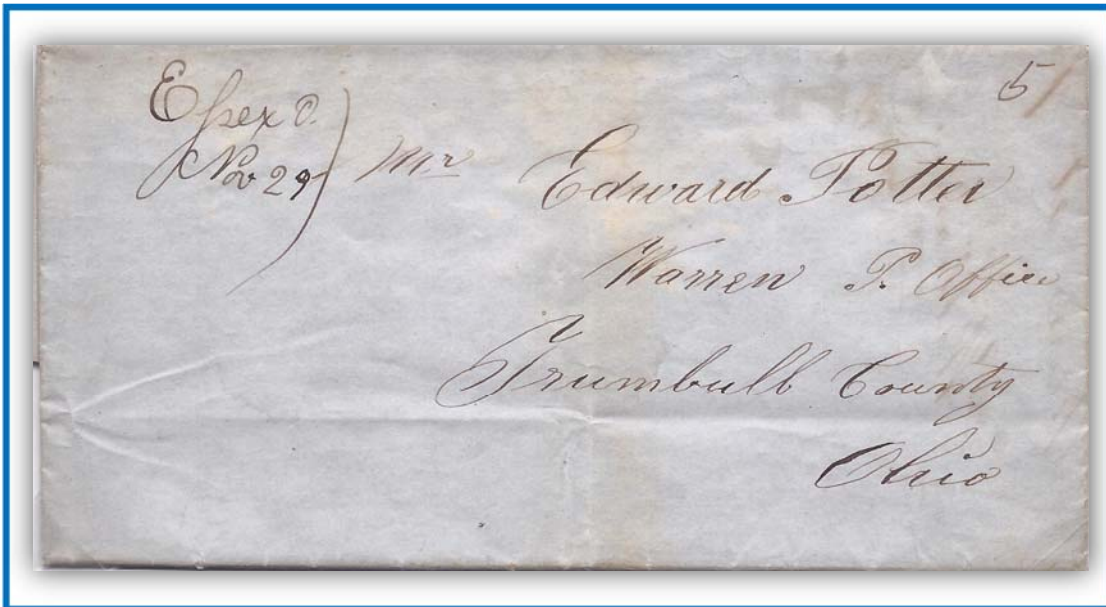 Essex O.
Nov 29
5
Mr Edward Potter
Warren P. Office
Trumbull County
Ohio